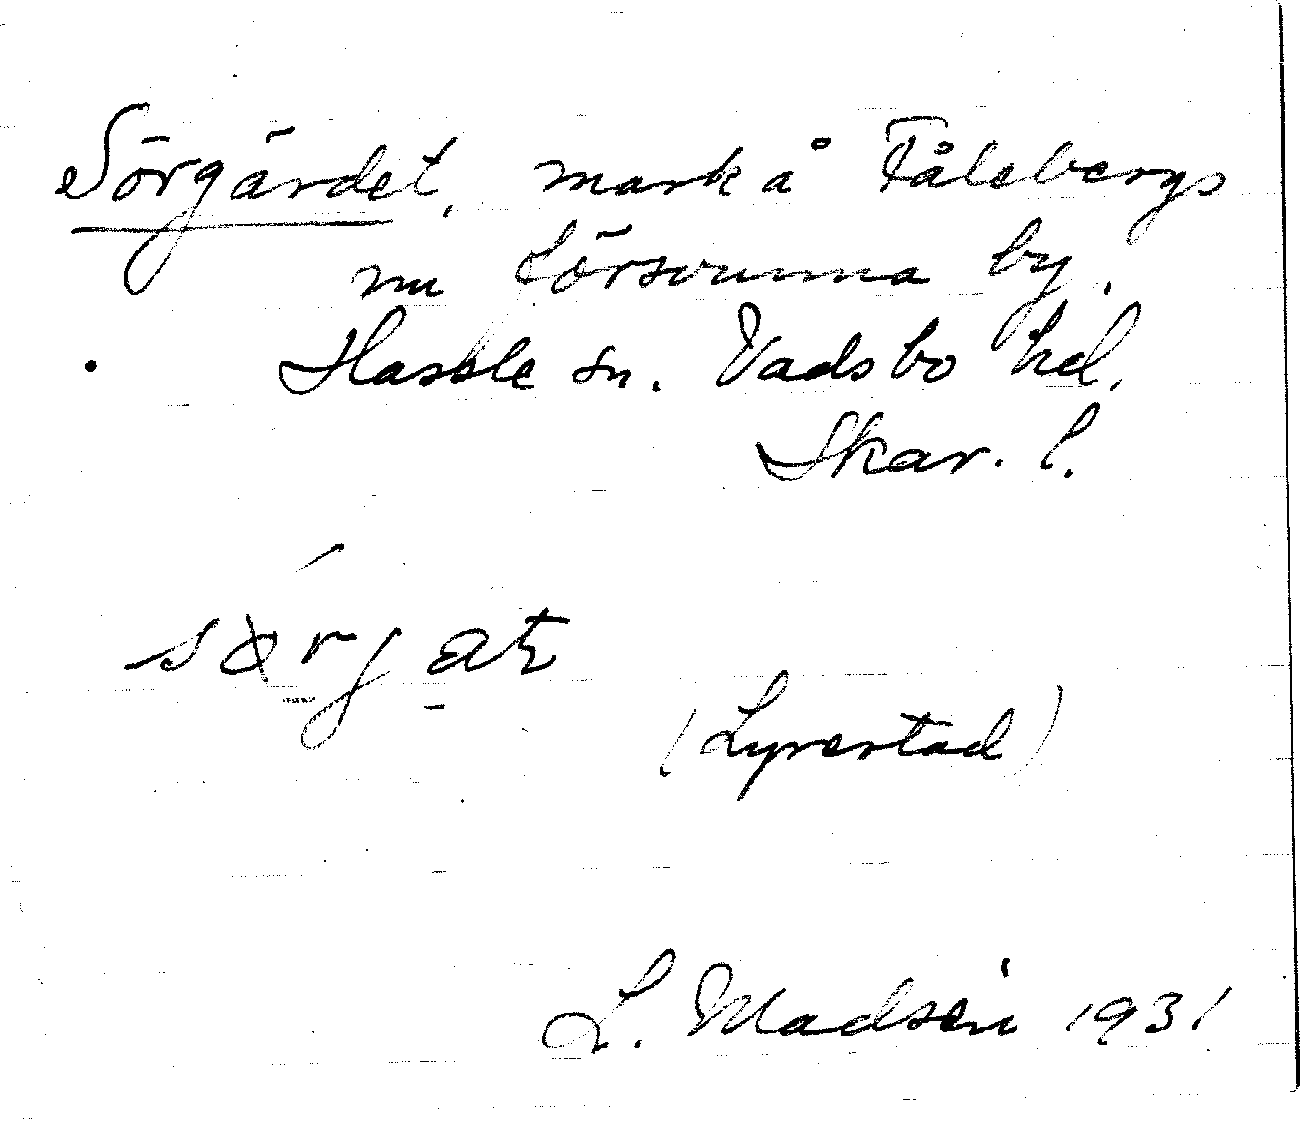 Sörgärdet, mark å Fålebergs
nu försvunna by.
Hassle sn. Vadsbo hd.
Skar. l.
(Lyrestad)
L. Madsén 1931